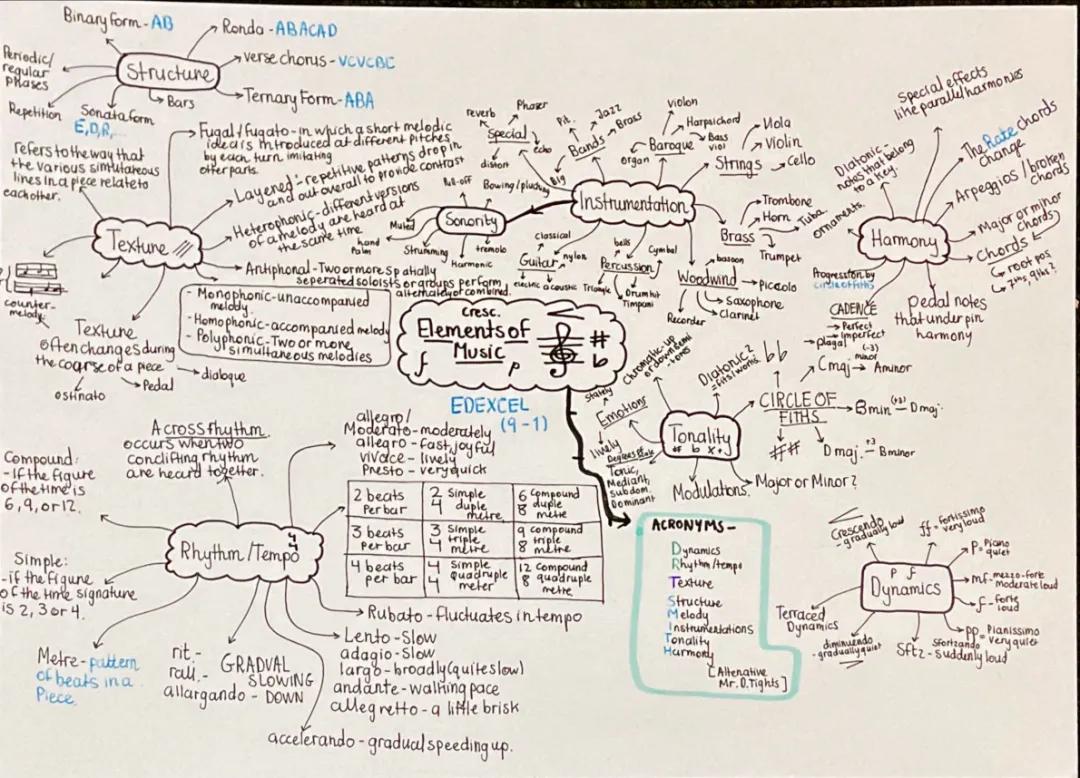 Binary Form - AB
Rondo - ABACAD
Periodic/
regular
phases
Structure
verse chorus - VCVCBC
Ternary Form - ABA
Repetition
Sonata form
E, D, R,
Bars
refers to the way that
the various simultaneous
lines in a piece relate to
each other.
Fugal/fugato - in which a short melodic
idea is introduced at different pitches
by each turn imitating
other parts.
Layered - repetitive patterns drop in
and out overall to provide contrast
Heterophonic - different versions
of a melody are heard at
the same time
Texture
Antiphonal - Two or more spatially
seperated soloists or groups perform
alternately or combined.
- Monophonic - unaccompanied
melody.
- Homophonic - accompanied melody
- Polyphonic - Two or more
simultaneous melodies
counter-
melody
Texture
often changes during
the coarse of a piece
dialogue
Pedal
ostinato
reverb
Phaser
Special
echo
distort
Pit.
Jazz
Brass
Bands
Big
Violon
Harpsichord
Baroque
Bass
viol
organ
Viola
Violin
Strings
cello
Instrumentation
Pull-off
Bowing/plucking
Sonority
Muted
hand
Palm
Strumming
Harmonic
tremolo
classical
Guitar
nylon
electric
acoustic
bells
Cymbal
Percussion
Triangle
Drum kit
Timpani
Brass
Trombone
Horn
Tuba
Trumpet
Woodwind
bassoon
Piccolo
Saxophone
Clarinet
Recorder
Special effects
like parallel harmonies
Diatonic -
notes that belong
to a key.
The Rate chords
change
Arpeggios / broken
chords
ornaments.
Harmony
Major or minor
chords
Chords
root pos
7ths, 9ths?
Progression by
circle of fiths
CADENCE
Perfect
imperfect
plagal
Pedal notes
that under pin
harmony
cresc.
Elements of
Music
f
p
# b
EDEXCEL
(9-1)
Chromatic - up
or down semi
- tones
Diatonic?
= fits/works
Stately
Emotions
lively
Degrees of scale
Tonic,
Mediant,
subdom.
Dominant
Tonality
# b x
Modulations.
Major or Minor?
bb
(-3)
minor
Cmaj → Aminor
CIRCLE OF
FITHS
Bmin (+3) Dmaj.
##
Dmaj. +3 Bminor
A cross rhythm
occurs when two
conclifting rhythm
are heard together.
Compound:
- If the figure
of the time is
6, 9, or 12.
Rhythm/Tempo
4
4
Simple:
- if the figure
of the time signature
is 2, 3 or 4.
Metre - pattern
of beats in a
Piece.
rit -
rall. -
allargando -
GRADUAL
SLOWING
DOWN
allegro/
Moderato - moderately
allegro - fast, joyful
vivace - lively
Presto - very quick
2 beats
Per bar
2
4
Simple
duple
metre
6
8
compound
duple
metre
3 beats
Per bar
3
4
Simple
triple
metre
9
8
compound
triple
metre
4 beats
per bar
4
4
Simple
quadruple
meter
12
8
Compound
quadruple
metre
Rubato - fluctuates in tempo
Lento - Slow
adagio - slow
largo - broadly (quite slow)
andante - walking pace
allegretto - a little brisk
accelerando - gradual speeding up.
ACRONYMS -
Dynamics
Rhythm/tempo
Texture
Structure
Melody
Instrumentations
Tonality
Harmony
[Altenative
Mr. D. Tights]
Crescendo
- gradually loud
ff = fortissimo
very loud
P = Piano
quiet
p f
Dynamics
mf - mezzo-forte
moderate loud
f - forte
loud
pp Pianissimo
very quiet
Terraced
Dynamics
diminuendo
- gradually quiet
Sforzando
Sftz - suddenly loud